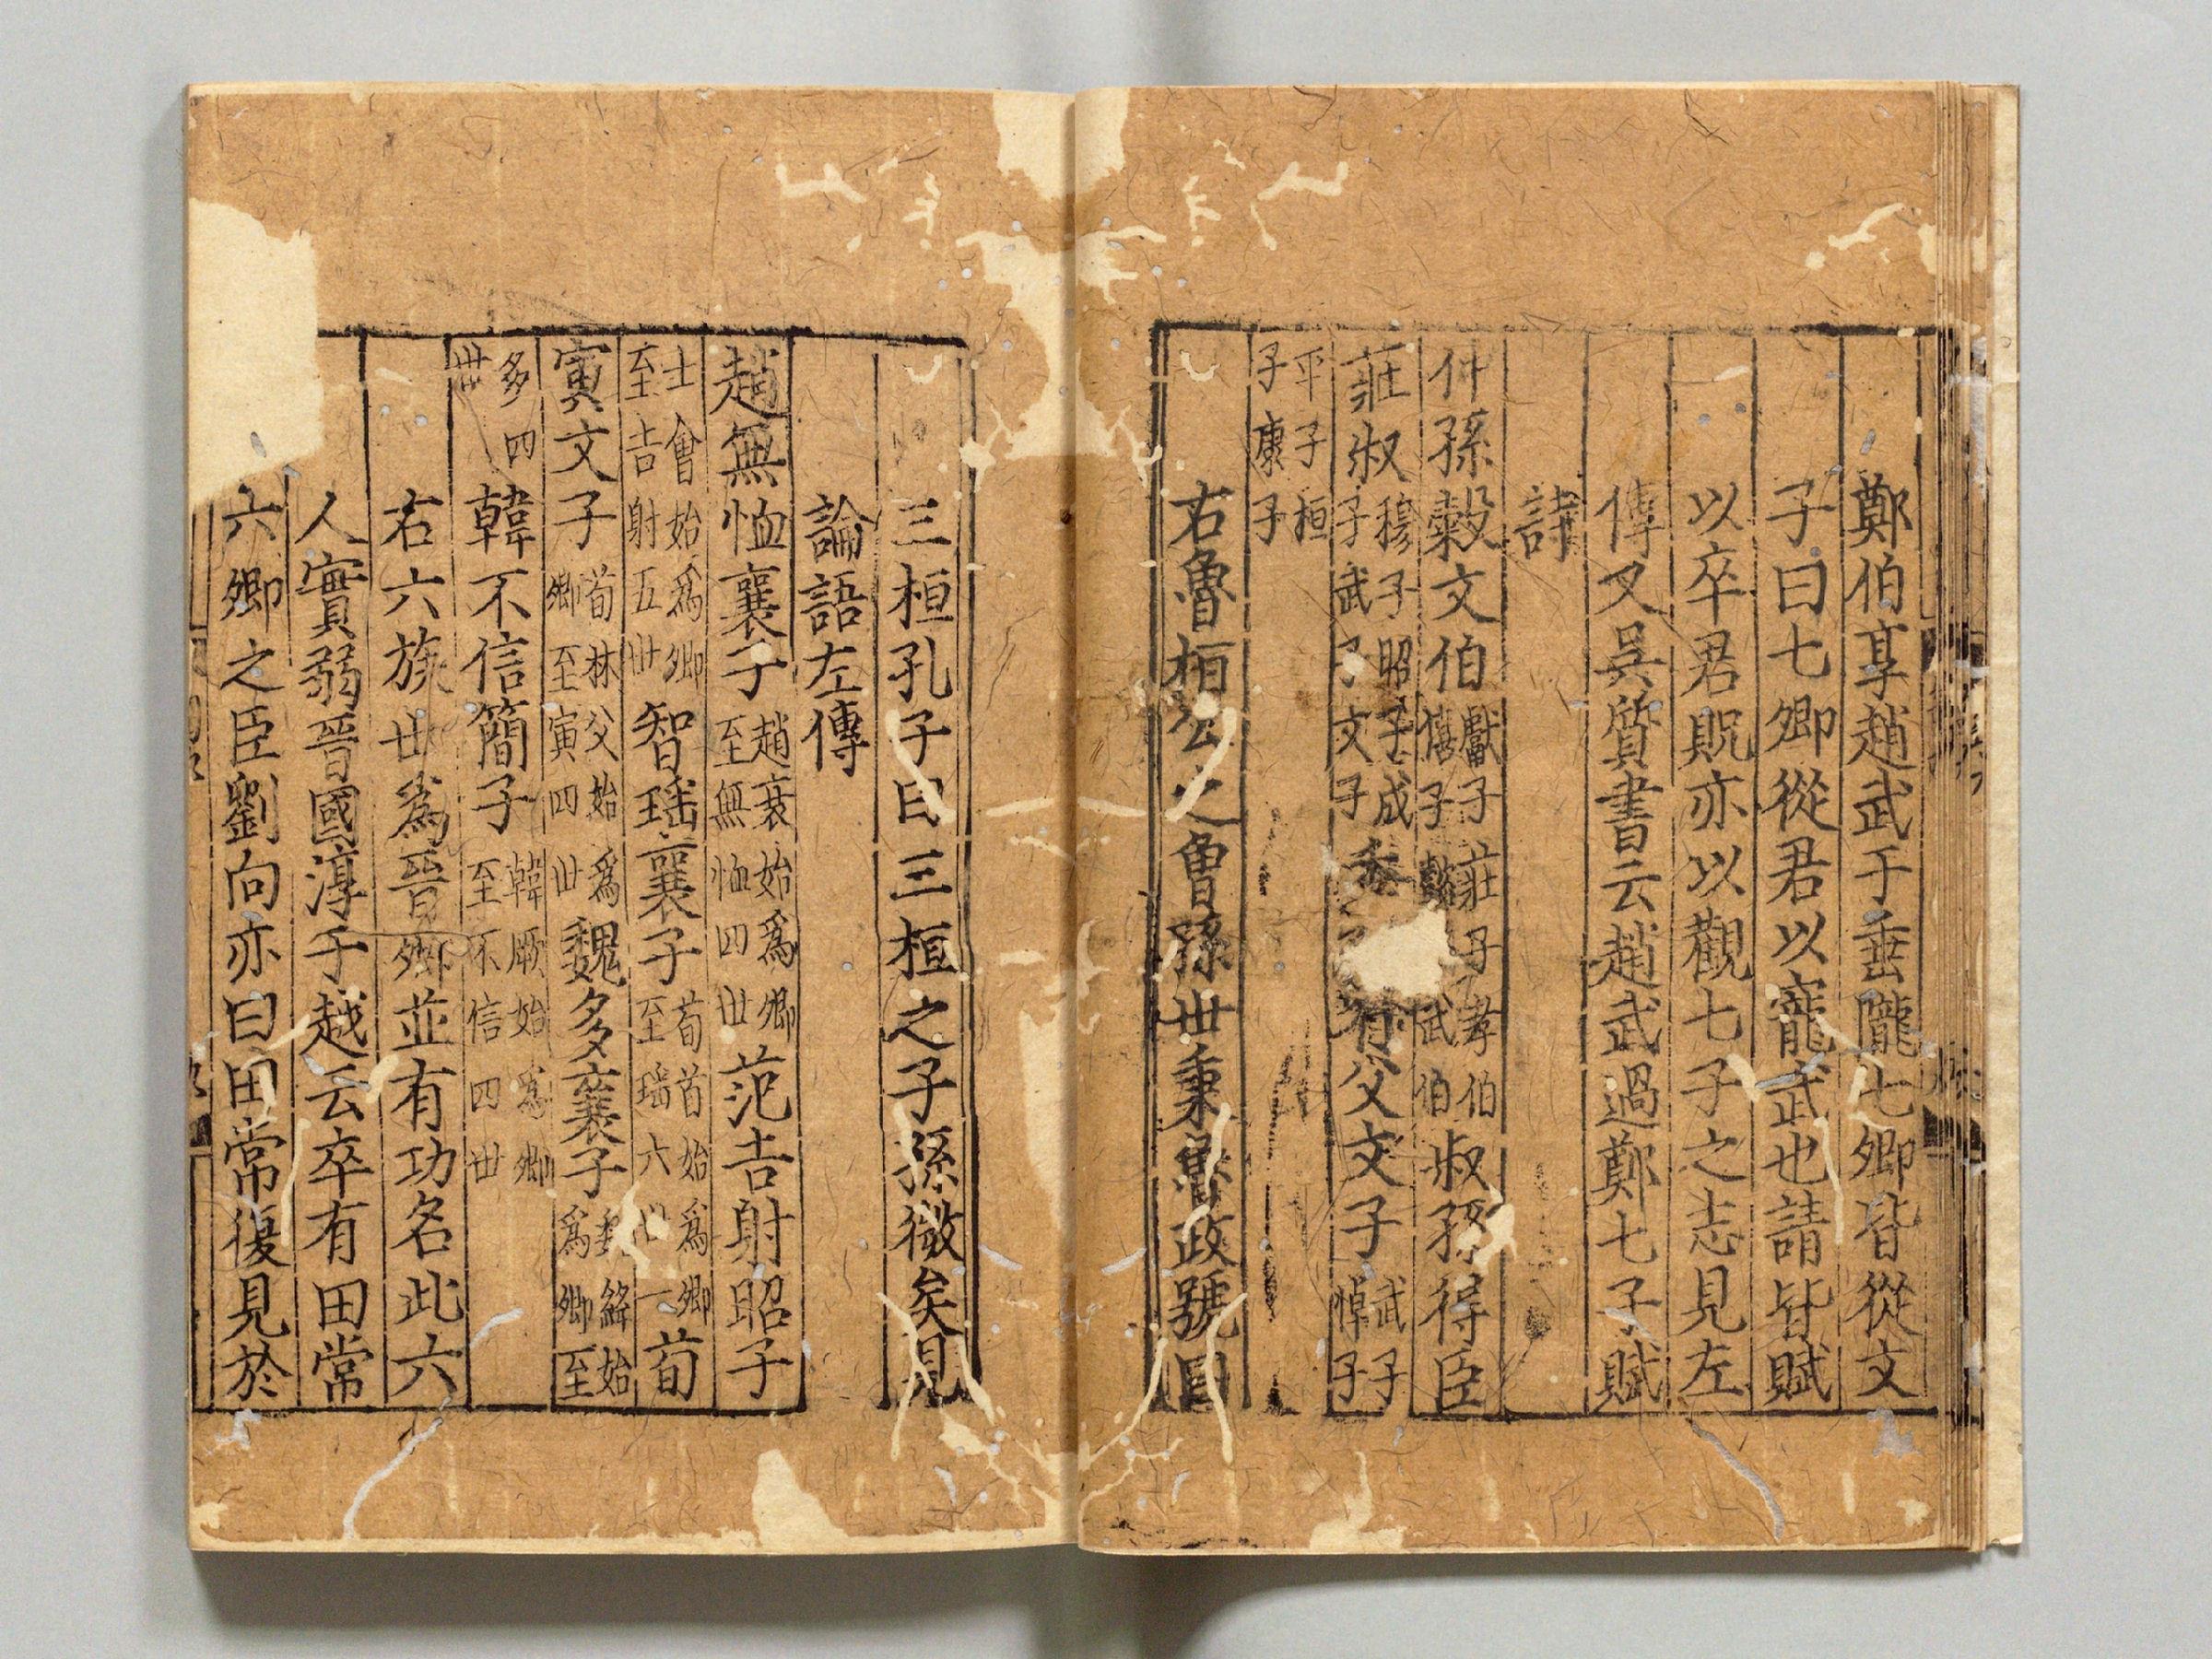 鄭伯享趙武于垂隴七卿皆從文
子曰七卿從君以寵武也請皆賦
以卒君貺亦以觀七子之志見左
傳又吳質書云趙武過鄭七子賦
詩
仲孫穀文伯獻子莊子孝伯僖子懿武伯叔孫得臣
莊叔穆子昭子成子武子文子季父文子武子悼子
平子桓子康子
右魯桓公之曾孫世秉魯政號曰
三桓孔子曰三桓之子孫微矣見
論語左傳
趙無恤襄子趙衰始爲卿至無恤四世范吉射昭子
士會始爲卿至吉射五世智瑶襄子荀首始爲卿至瑶六世荀
寅文子荀林父始爲卿至寅四世魏多襄子魏絳始爲卿至
多四世韓不信簡子韓厥始爲卿至不信四世
右六族世爲晉卿並有功名此六
人實弱晉國淳于越云卒有田常
六卿之臣劉向亦曰田常復見於